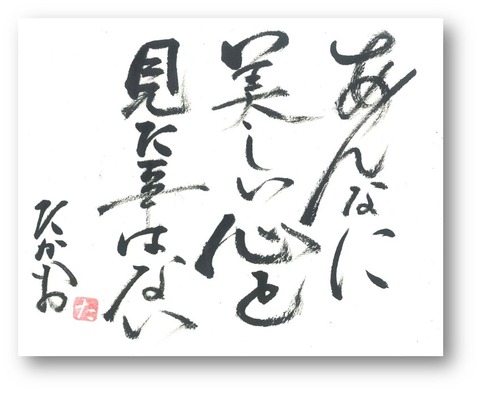 あんなに
美しい心を
見た事はない
たかお
た